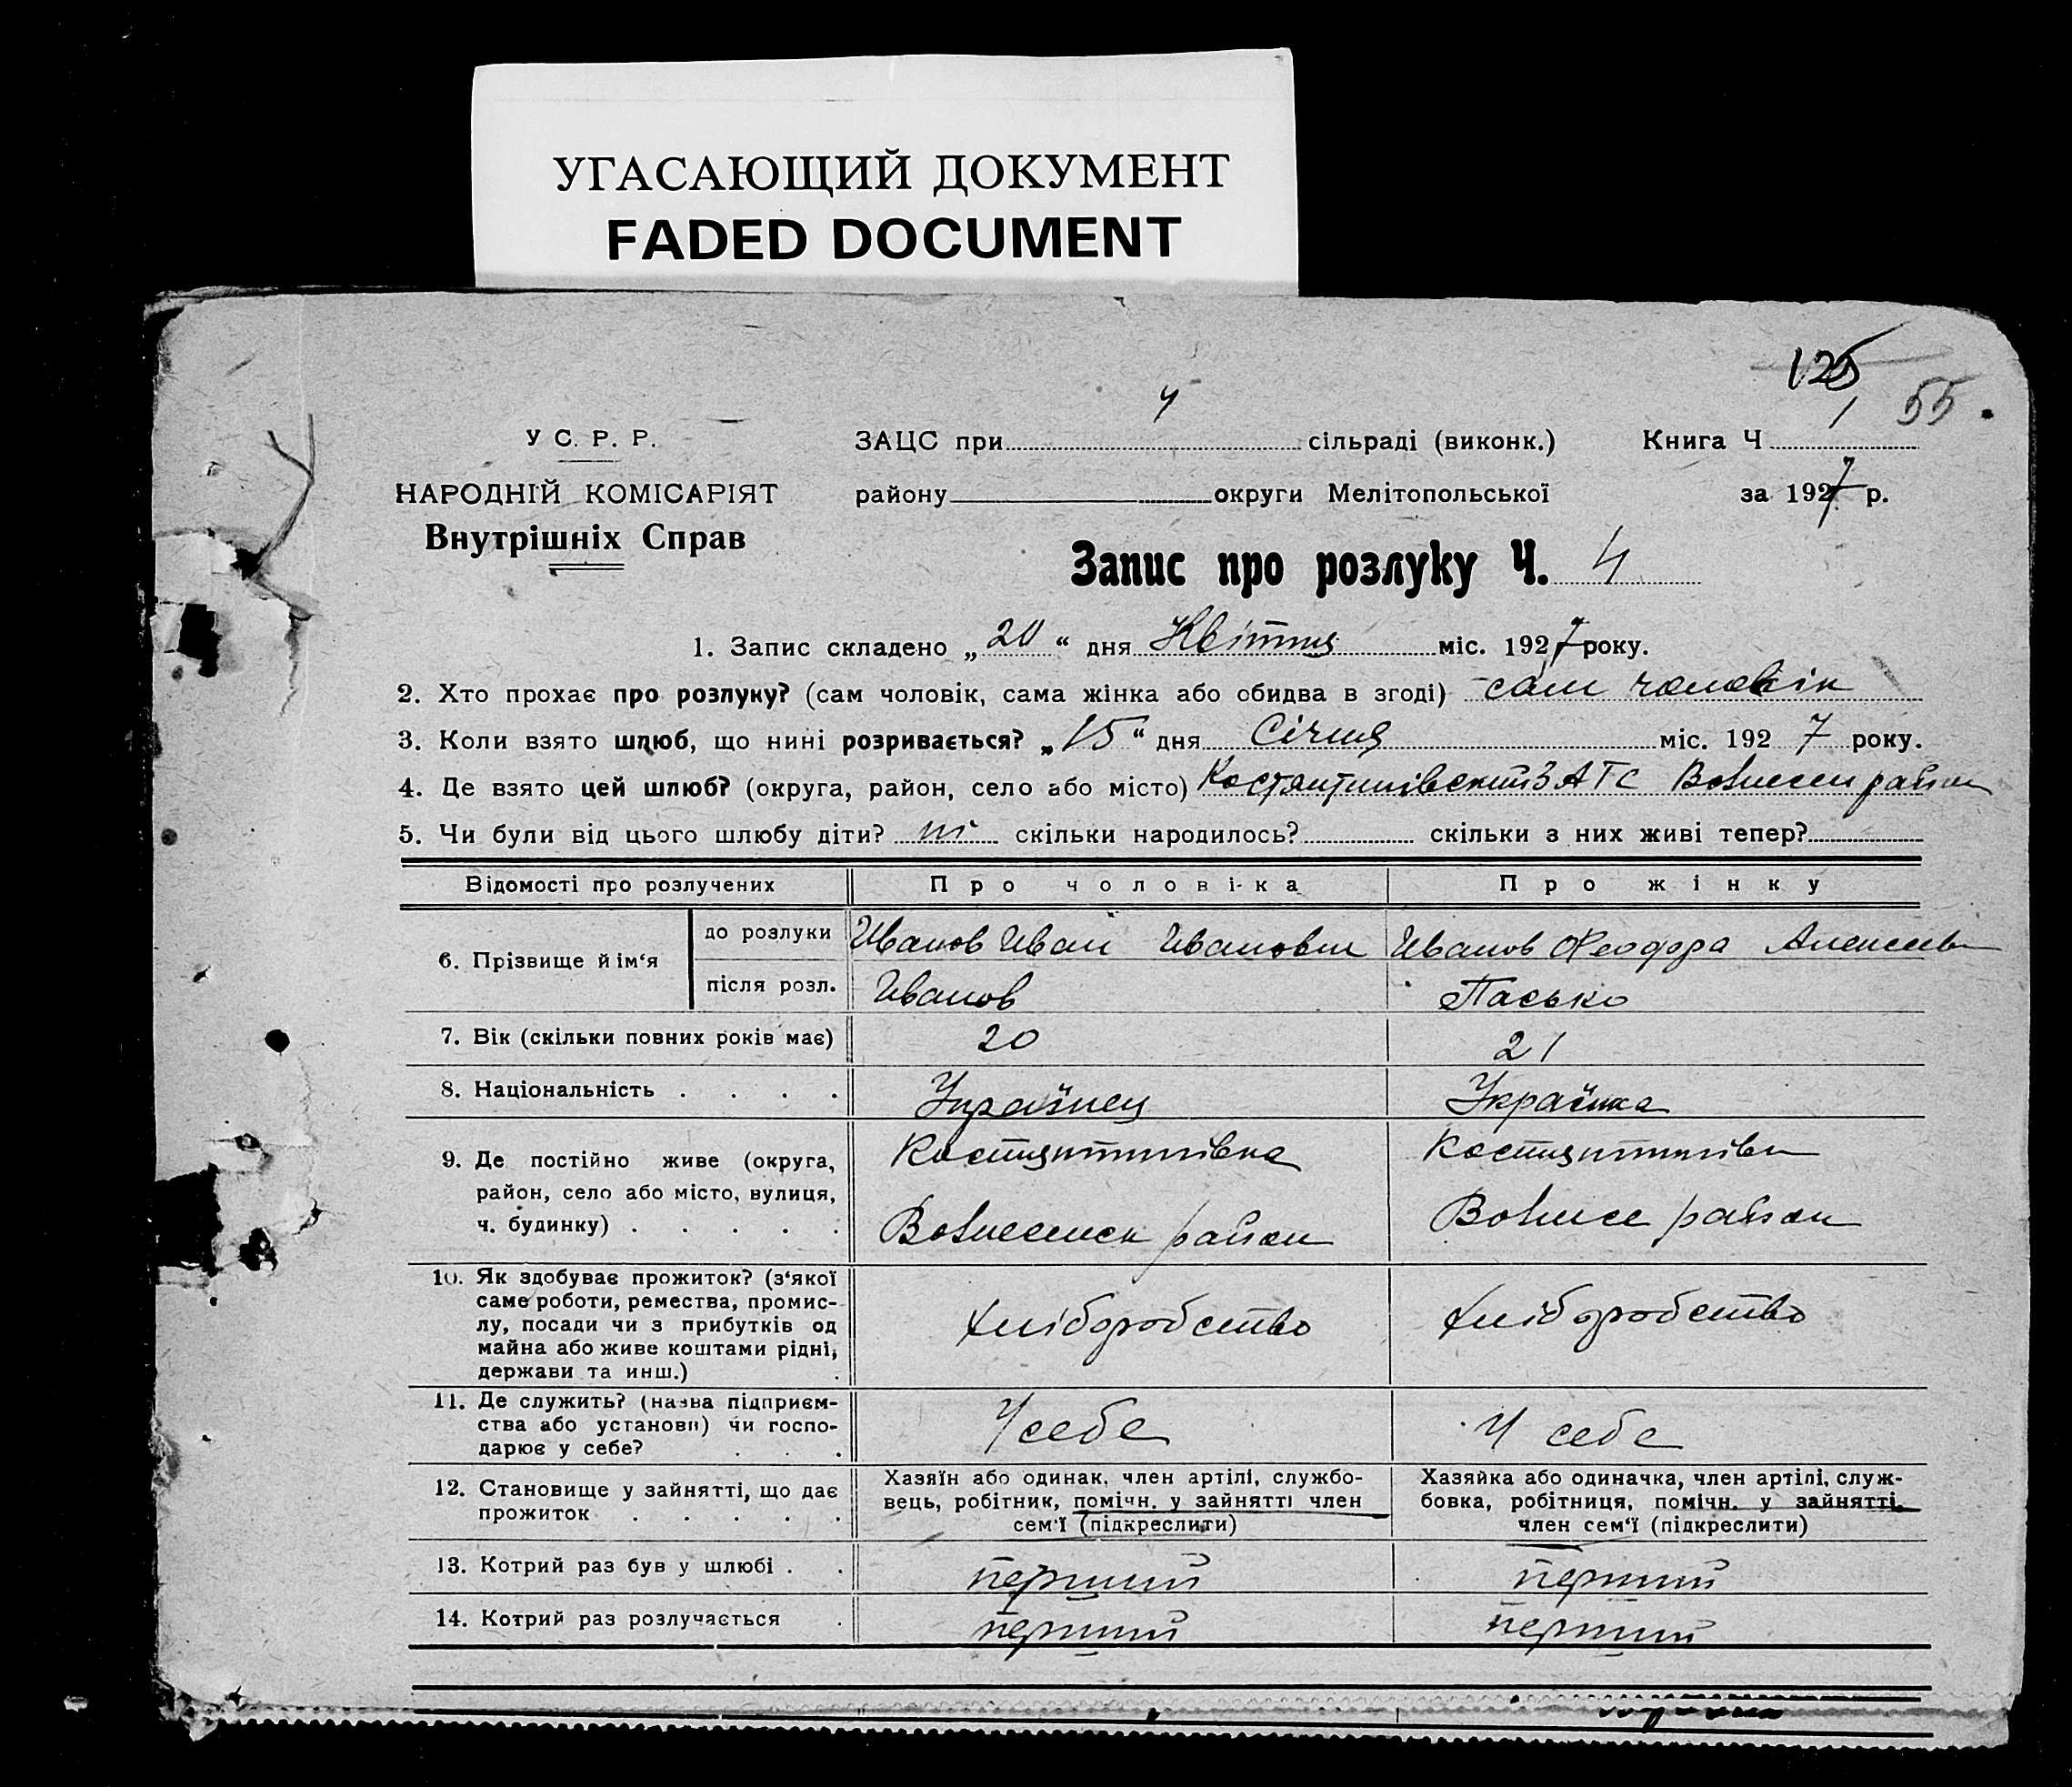 УГАСАЮЩИЙ ДОКУМЕНТ
FADED DOCUMENT
125
55.
У С. Р. Р.
ЗАЦС при сільраді (виконк.) Книга Ч 1
НАРОДНІЙ КОМІСАРІЯТ
району округи Мелітопольської за 1927 р.
Внутрішніх Справ
Запис про розлуку Ч. 4
1. Запис складено „20“ дня Квітня міс. 1927 року.
2. Хто прохає про розлуку? (сам чоловік, сама жінка або обидва в згоді) сам чоловік
3. Коли взято шлюб, що нині розривається? „15“ дня Січня міс. 1927 року.
4. Де взято цей шлюб? (округа, район, село або місто) Костянтинівский ЗАГС Вознесен район
5. Чи були від цього шлюбу діти? ні скільки народилось? скільки з них живі тепер?
Відомості про розлучених Про чоловіка Про жінку
6. Прізвище й ім‘я до розлуки Иванов Иван Иванович Иванов Феодора Алексеев
після розл. Иванов Пасько
7. Вік (скільки повних років має) 20 21
8. Національність . . . . Українец Українка
9. Де постійно живе (округа, район, село або місто, вулиця, ч. будинку) . . . . Костянтинівка Костянтинівк
Вознесенск район Вознисе район
10. Як здобуває прожиток? (з‘якої саме роботи, ремества, промислу, посади чи з прибутків од майна або живе коштами рідні, держави та инш.) . хліборобство хліборобство
11. Де служить? (назва підприємства або установи) чи господарює у себе? . . . У себе У себе
12. Становище у зайнятті, що дає прожиток . . . . .
Хазяїн або одинак, член артілі, службовець, робітник, помічн. у зайнятті член сем‘ї (підкреслити)
Хазяйка або одиначка, член артілі, службовка, робітниця, помічн. у зайнятті, член сем‘ї (підкреслити)
13. Котрий раз був у шлюбі . . перший перший
14. Котрий раз розлучається . перший перший